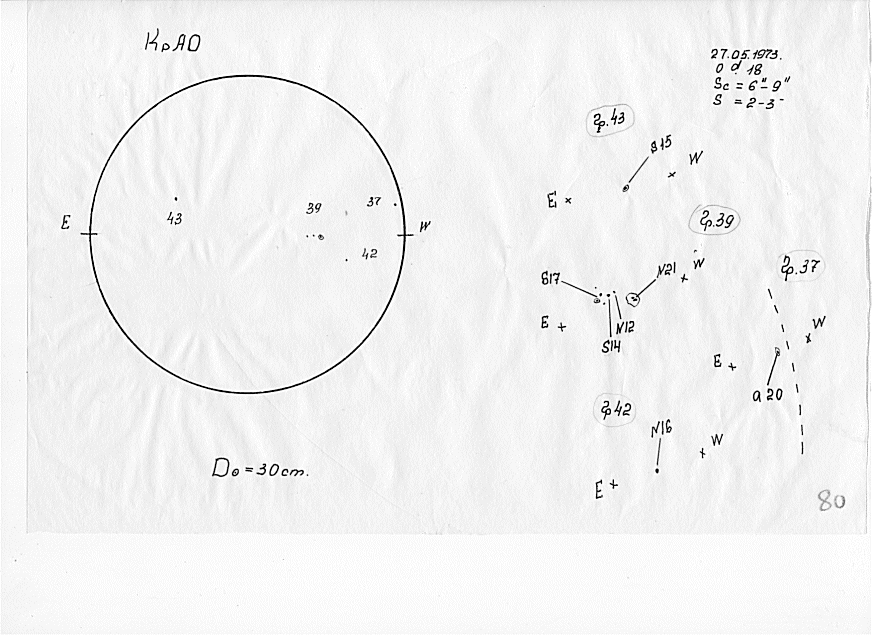 КрАО
27.05.1973.
0 d. 18
Sc = 6"-9"
S = 2-3
E
W
43
39
37
42
D⊙ = 30 cm.
гр.43
S15
E
W
гр.39
S17
N21
W
E
N12
S14
гр.37
W
E
a 20
гр.42
N16
W
E
80